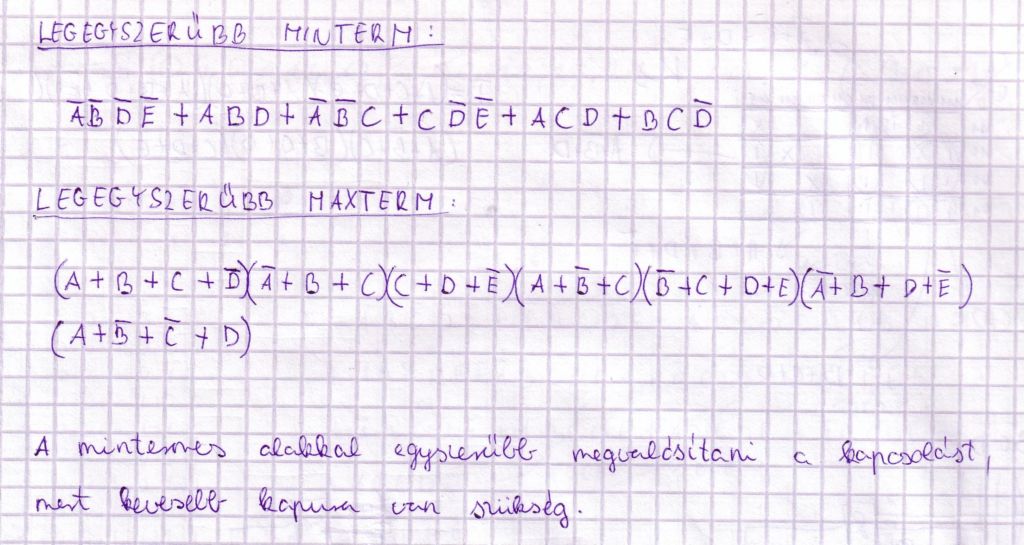 LEGEGYSZERŰBB MINTERM:
A̅ B̅ D̅ E̅ + A B D + A̅ B̅ C + C D̅ E̅ + A C D + B C D̅
LEGEGYSZERŰBB MAXTERM:
(A + B + C + D̅)(A̅ + B + C)(C + D + E̅)(A + B̅ + C)(B̅ + C + D + E)(A̅ + B + D + E̅)
(A + B̅ + C̅ + D)
A mintermes alakkal egyszerűbb megvalósítani a kapcsolást,
mert kevesebb kapura van szükség.